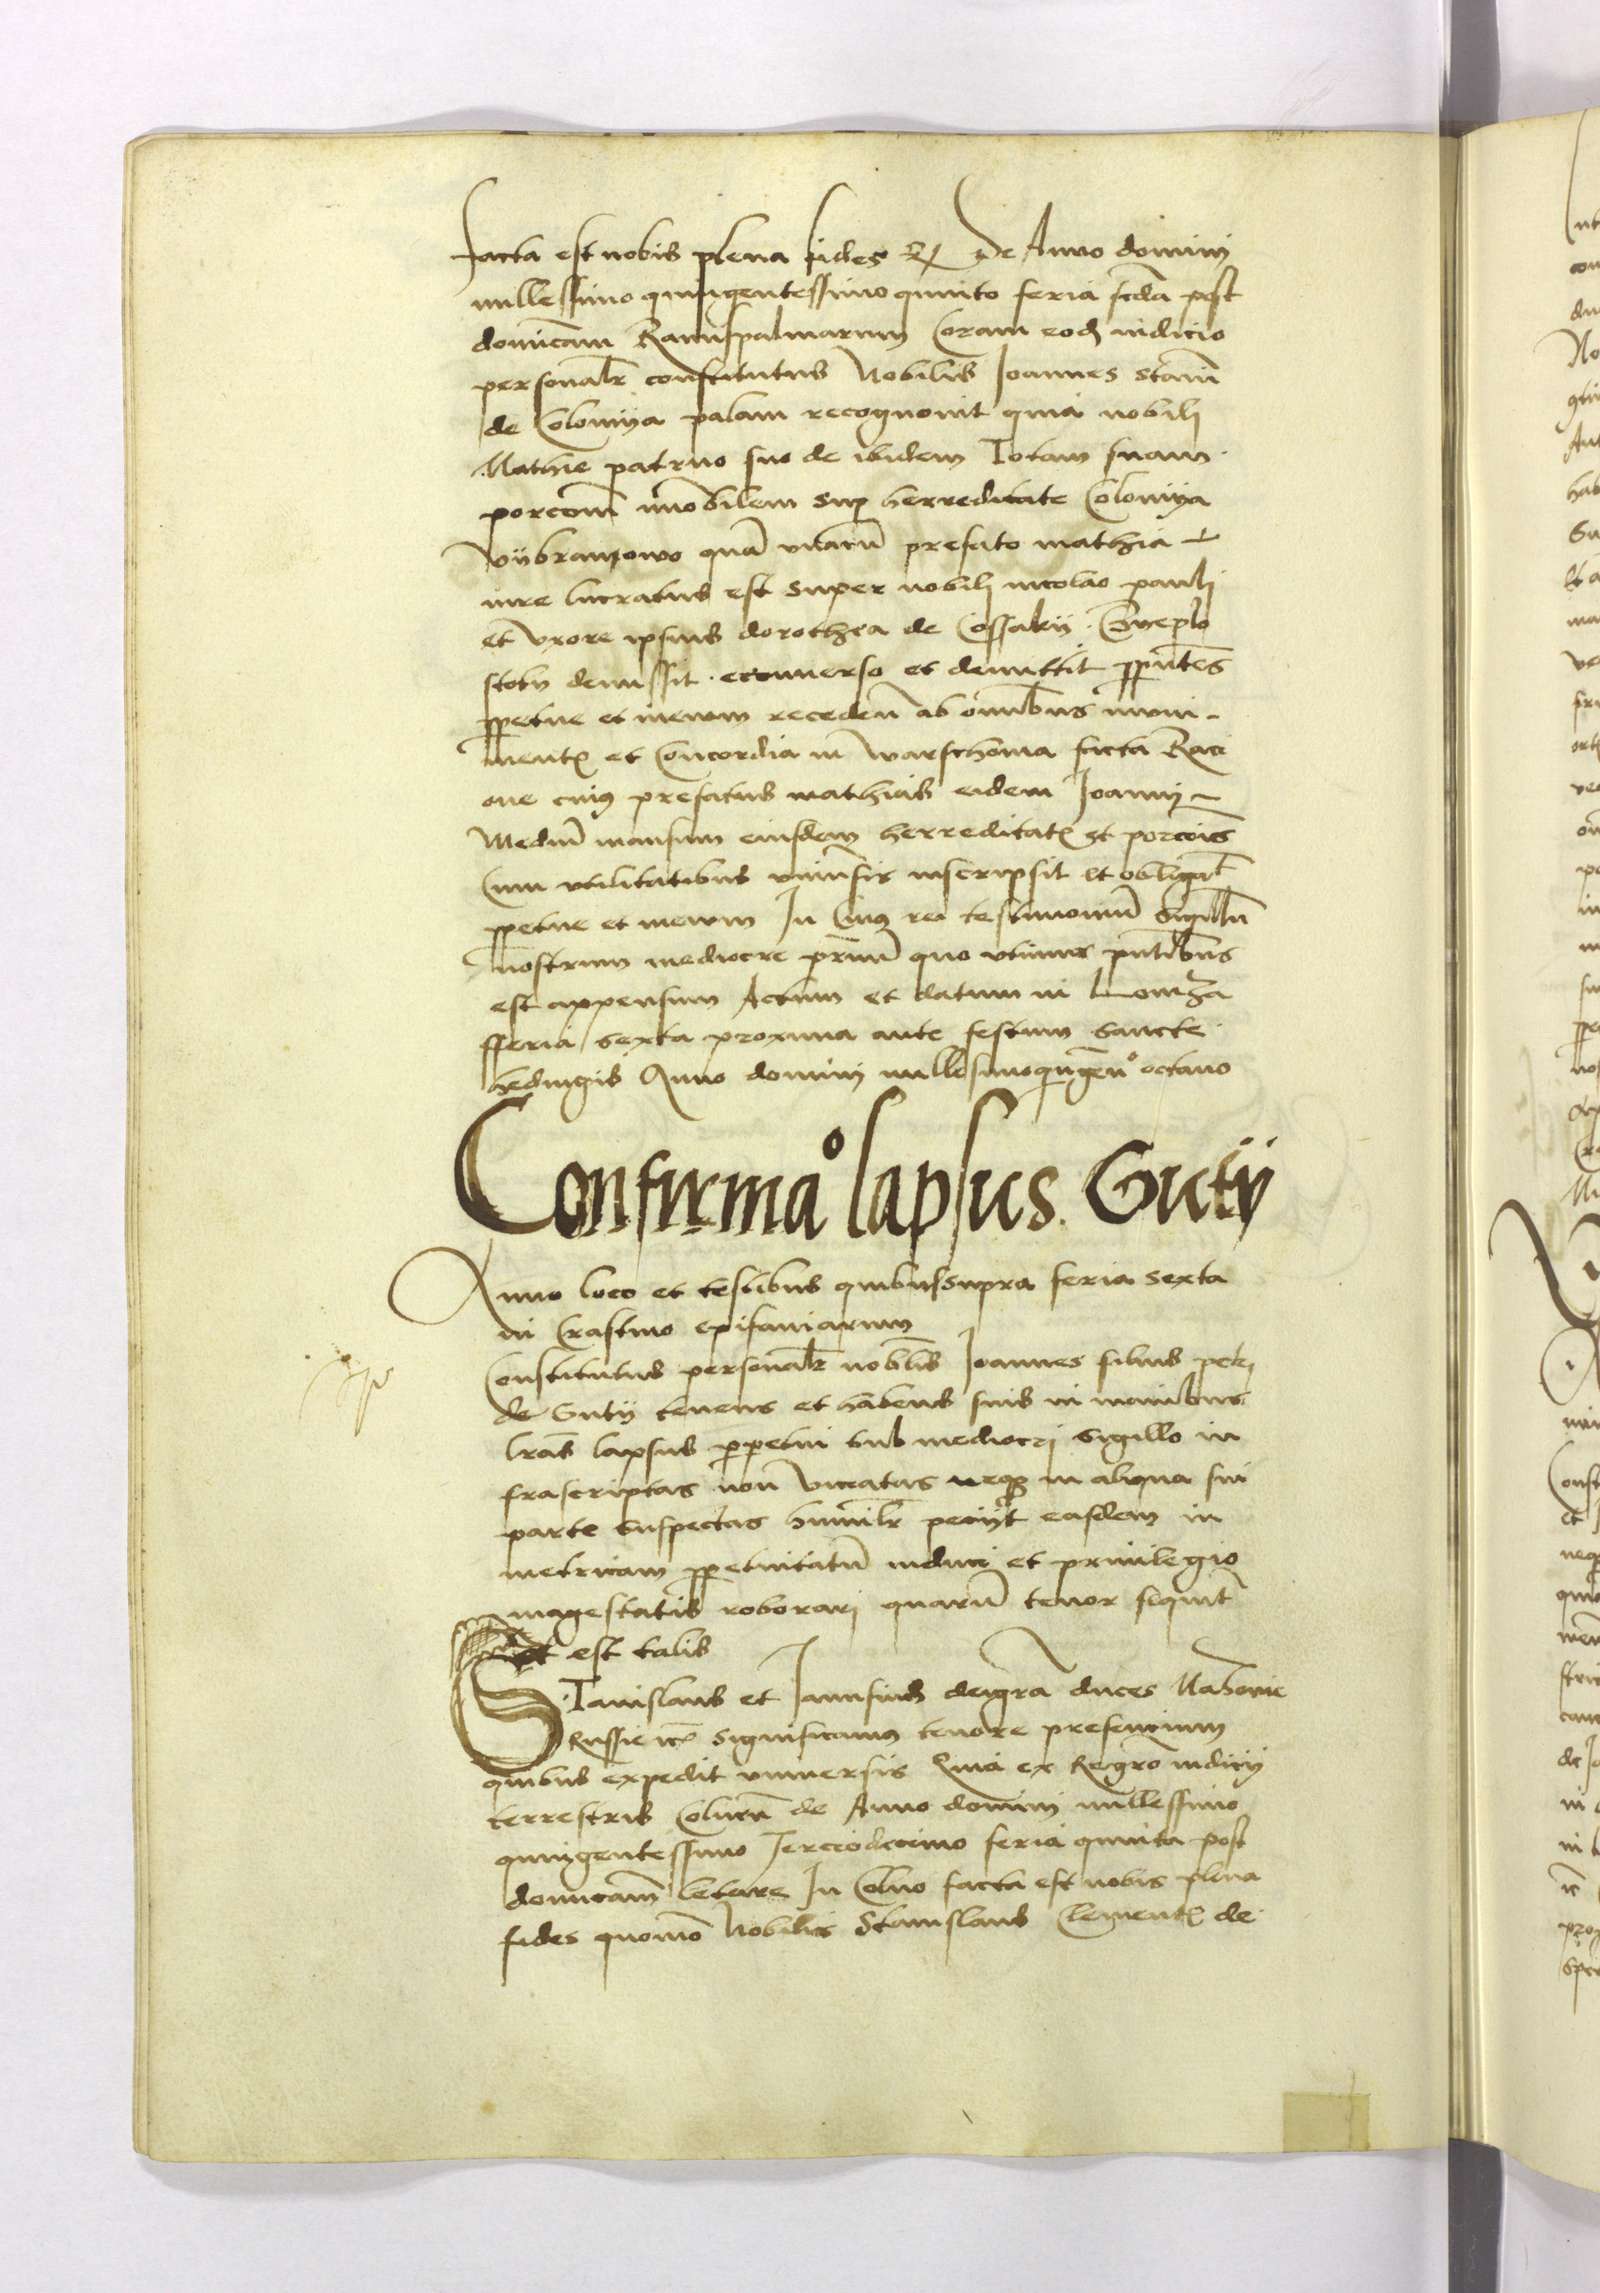 facta est nobis plena fides Qd de Anno domini
millessimo quingentessimo quinto feria scda post
donicam Ramispalmarum Coram eodem iudicio
personalr constitutus Nobilis Joannes
de Colomya palam recognouit quia nobili
Mathie patruo suo de ibidem Totam suam
porcom imobilem sup herreditate Colomya
quam vnacum prefato mathia
iure lucratus est super nobili nicolao pauli
et vxore ipsius dorothea de Cossaky
demissit econuerso et demittit pputes
ppetue et in ewm receden ab omnibus muni-
ment et Concordia in Warschouia facta Raci
one cuius prefatus mathias eidem Joanni
Medium mansum eiusdem herreditat et porcois
Cum vtilitatibus vniuersis inscripsit et obligat
ppetue et in ewm In Cuius rei testimonium Sigillum
nostrum mediocre quo vtimur pntibus
est appensum Actum et datum in Lomza
fferia sexta proxima ante festum Sancte
hedwigis Anno domini millesimoquingen° octauo
Confirma° lapsus. Guty
Anno loco et testibus quibussupra feria sexta
in Crastino epifaniarum
Constitutus personalr nobilis Joannes filius petri
de Guty tenens et habens suis in manibus
lras lapsus perpetui sub mediocri sigillo in
frascriptas non viciatas neque in aliqua sui
parte suspectas humilr peciyt easdem in
metricam ppetuitatum induci et priuilegio
magestatis roborari quarum tenor sequit
et est talis
Stanislaus et Janussius deigra duces Mazouie
Russie etc Significamus tenore presencium
quibus expedit vniuersis Quia ex Regro iudicij
terrestris Colnen de Anno domini millessimo
quingentessimo Terciodecimo feria quinta post
donicam letare In Colno facta est nobis plena
fides quomo Nobilis Stanislaus Clement de